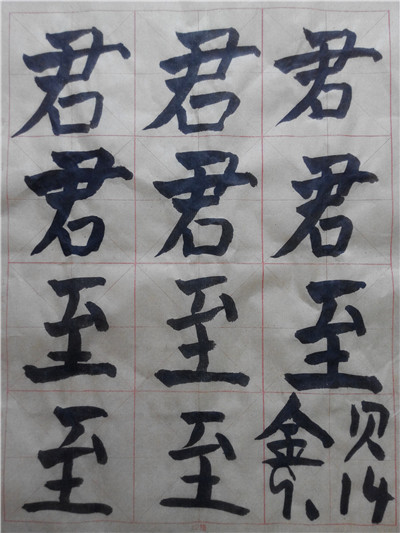 君君君
君君君
至至至
至至金贝
7、14